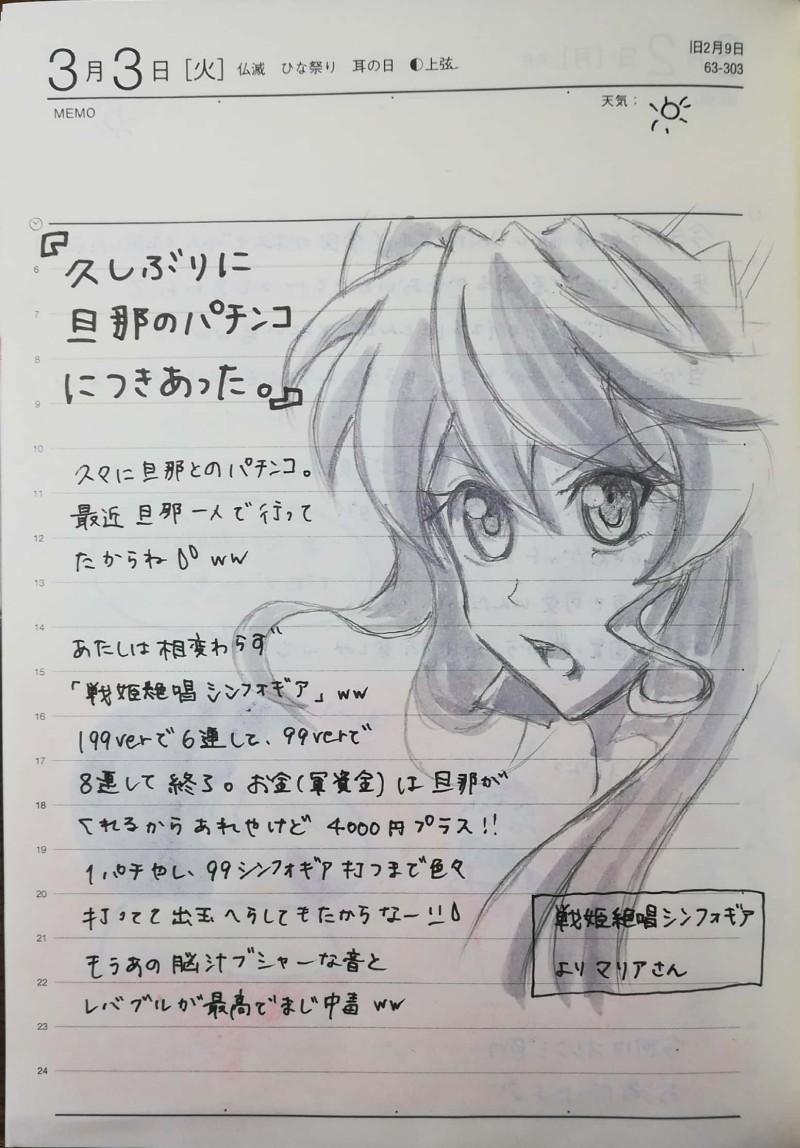 3月3日[火] 仏滅 ひな祭り 耳の日 ◐上弦
旧2月9日
63-303
MEMO
天気：
『久しぶりに
旦那のパチンコ
につきあった。』
久々に旦那とのパチンコ。
最近旦那一人で行って
たからね ww
あたしは相変わらず
「戦姫絶唱シンフォギア」ww
199verで6連して、99verで
8連して終了。お金(軍資金)は旦那が
くれるからあれやけど 4000円プラス!!
1パチやし、99シンフォギア打つまで色々
打ってて出玉へらしてもたからなー!!
もうあの脳汁ブシャーな音と
レバブルが最高でまじ中毒ww
戦姫絶唱シンフォギア
よりマリアさん
6
7
8
9
10
11
12
13
14
15
16
17
18
19
20
21
22
23
24